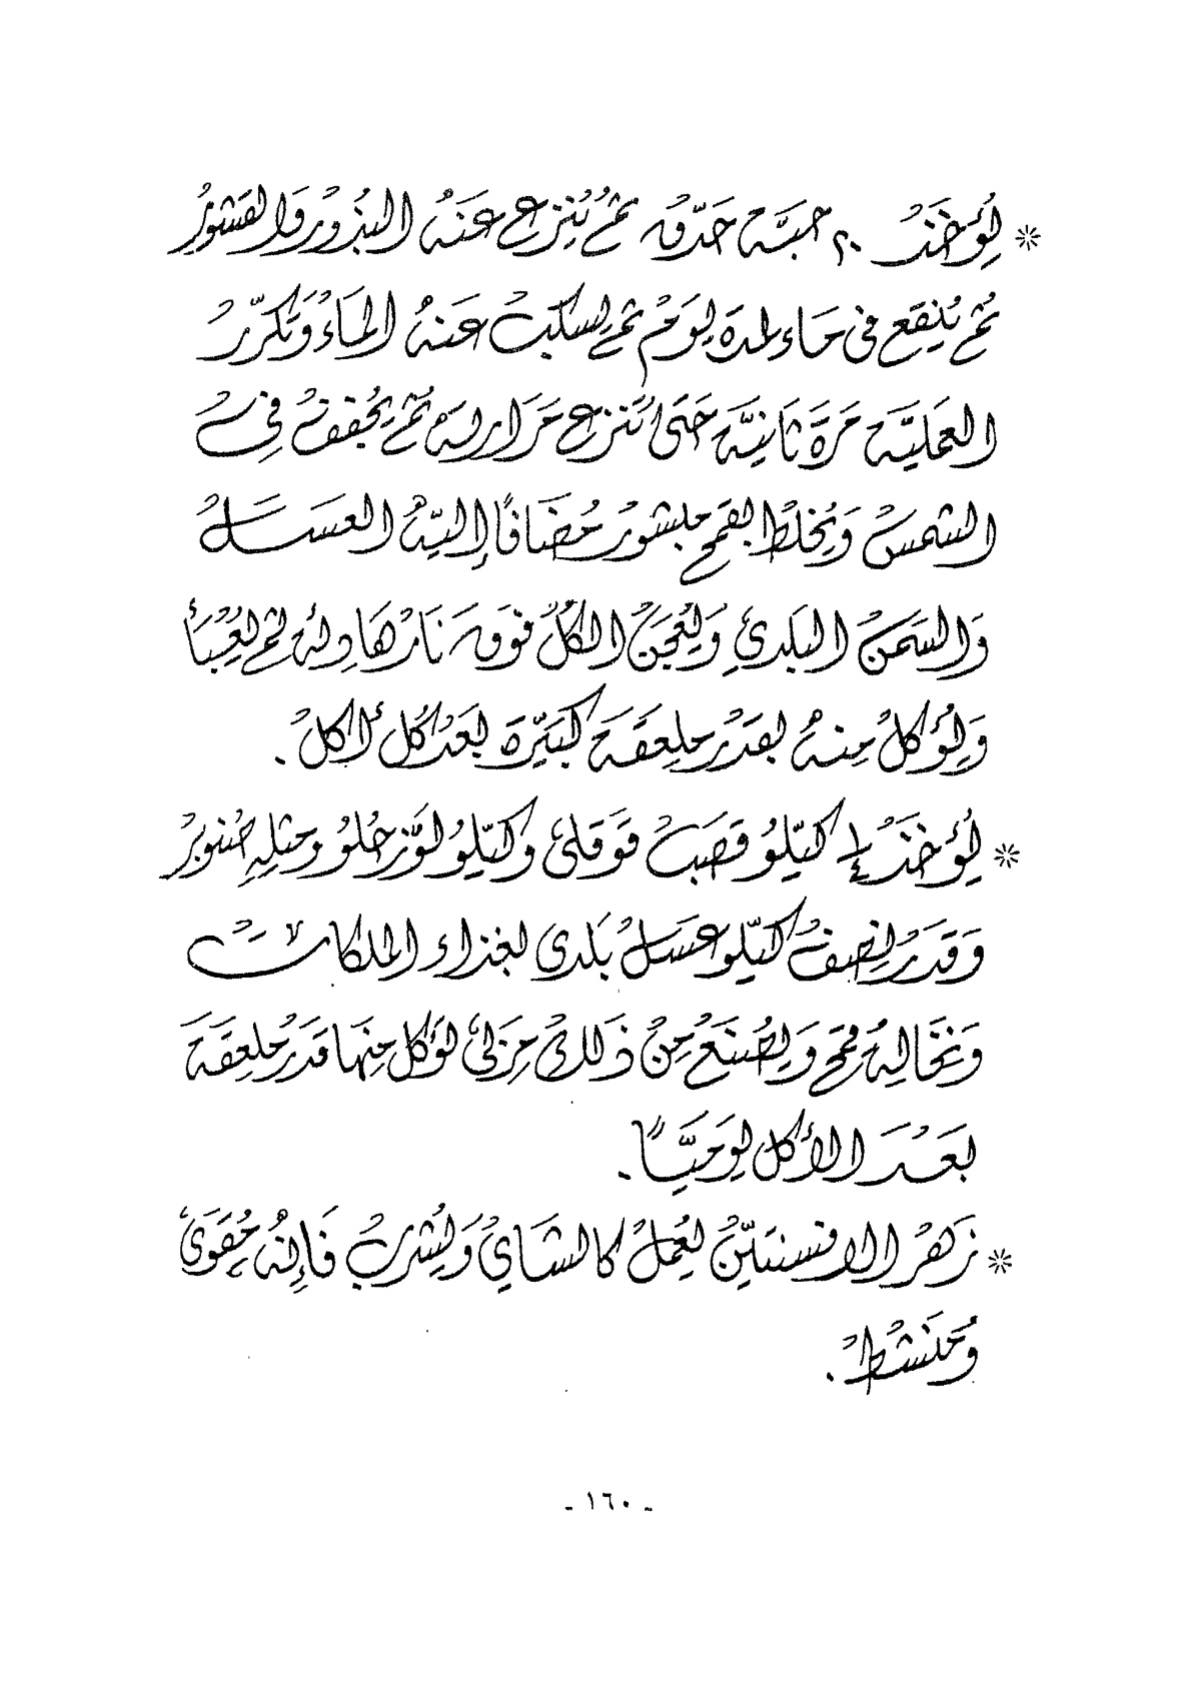 * يُؤخَذُ ٢٠ حبَّه حَدّقه ثمَّ يُنزع عَنهُ البذُور وَالقشورُ
ثم يُنقع في مَاء لمدة يَومُ ثم يسكبُ عَنهُ الماءُ وَتكرّرُ
العَمليَّه مَرةَ ثانيَّه حَتى تَنزع مَرارلهُ ثم يجُففُ فى
الشمسُ وَيُخلطُ بقمح مبشورُ مُضَافًا إليّهُ العسَلُ
وَالسَمنُ البَلدي وَيُعجَنُ الكُلُ فوَقه نَارُ هَادِئه ثم يُعبَأ
وَيُؤكلُ مِنهُ بقدَرُ مِلعَقَة كَبيّرَة بعَدَ كُل أكلُ .
* يُؤخَذُ ١/٤ كيّلُو قصَبُ قوَقلى وَكيّلُو لوَّز حُلوُ وَمثلِهِ صُنوبرُ
وَقدَرُ نِصفُ كيّلو عسَلُ بَلدي بغذاء الملكاتُ
وَنخَالة قمح وَيصُنَعُ مِنُ ذَلكُ مِزَلى يؤَكل مِنهَا قدَرُ ملعِقَة
بَعُدَ الأكل يوَميًّا .
* زَهرُ الافسنتيّنُ يُعملُ كالشَاي وَيُشربُ فَإنهُ مُقِوَى
وُمنَشطُ .
- ١٦٠ -